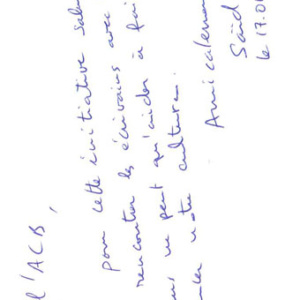 l'ACB,
pour cette initiative
rencontrer les écrivains avec
ne peut qu'aider à
notre culture.
Amicalemen
Saïd
le 17.01